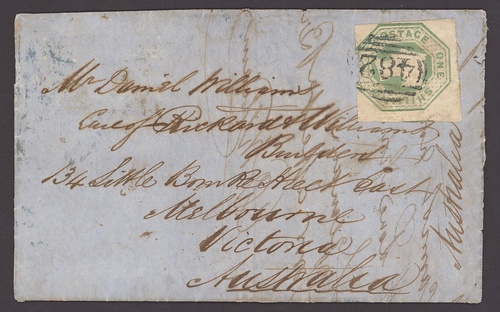 POSTAGE ONE
SHILLING
482
Mr Daniel Williams
Care of Rickard & Williams
Builders
134 Little Bourke Street East
Melbourne
Victoria
Australia
Australia